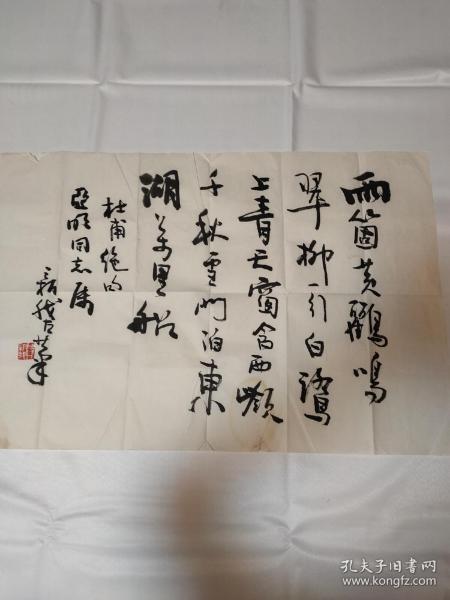 兩箇黄鸝鳴
翠柳一行白鷺
上青天窗含西嶺
千秋雪門泊東
湖萬里船
杜甫絕句
亞明同志属
孔夫子旧书网
www.kongfz.com